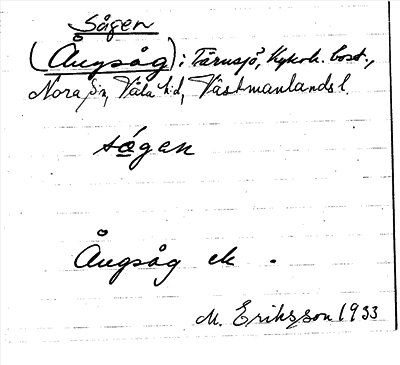 Sågen
(Ångsåg): Tärnsjö, Kyrkoh. bost.,
Nora sn, Våla hd, Västmanlands l.
sógen
Ångsåg ek.
M. Eriksson 1933